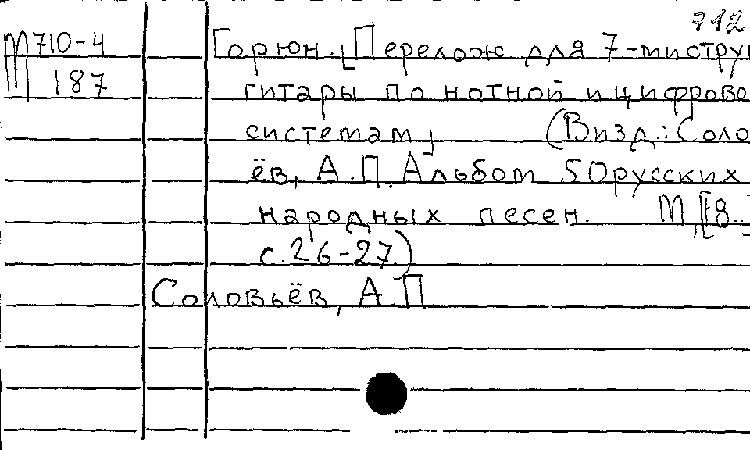 712
М 710-4
187
Горюн. [Перелож для 7-миструн
гитары по нотной и цифрово
системам]
(В изд.: Соло
ёв, А.П. Альбом 50 русских
народных песен. М, [18..]
с. 26-27)
Соловьёв, А П